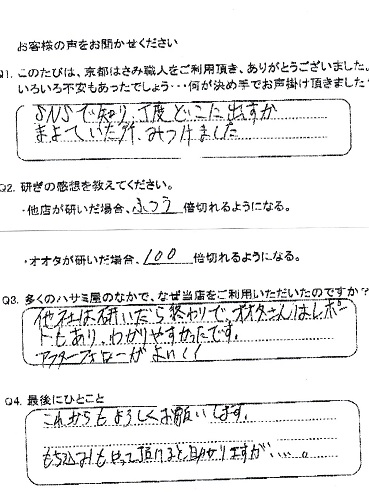 お客様の声をお聞かせください
Q1. このたびは、京都はさみ職人をご利用頂き、ありがとうございました。
いろいろ不安もあったでしょう・・・何が決め手でお声掛け頂きました？
SNSで知り、丁度どこに出すか
まよていた所、みつけました
Q2. 研ぎの感想を教えてください。
・他店が研いだ場合、ふつう倍切れるようになる。
・オオタが研いだ場合、100倍切れるようになる。
Q3. 多くのハサミ屋のなかで、なぜ当店をご利用いただいたのですか？
他社は研いだら終わりで、オオタさんはレポー
トもあり、わかりやすかったです。
アフターフォローがよい！！
Q4. 最後にひとこと
これからもよろしくお願いします。
もち込みもやって頂けると助かりますが、……。